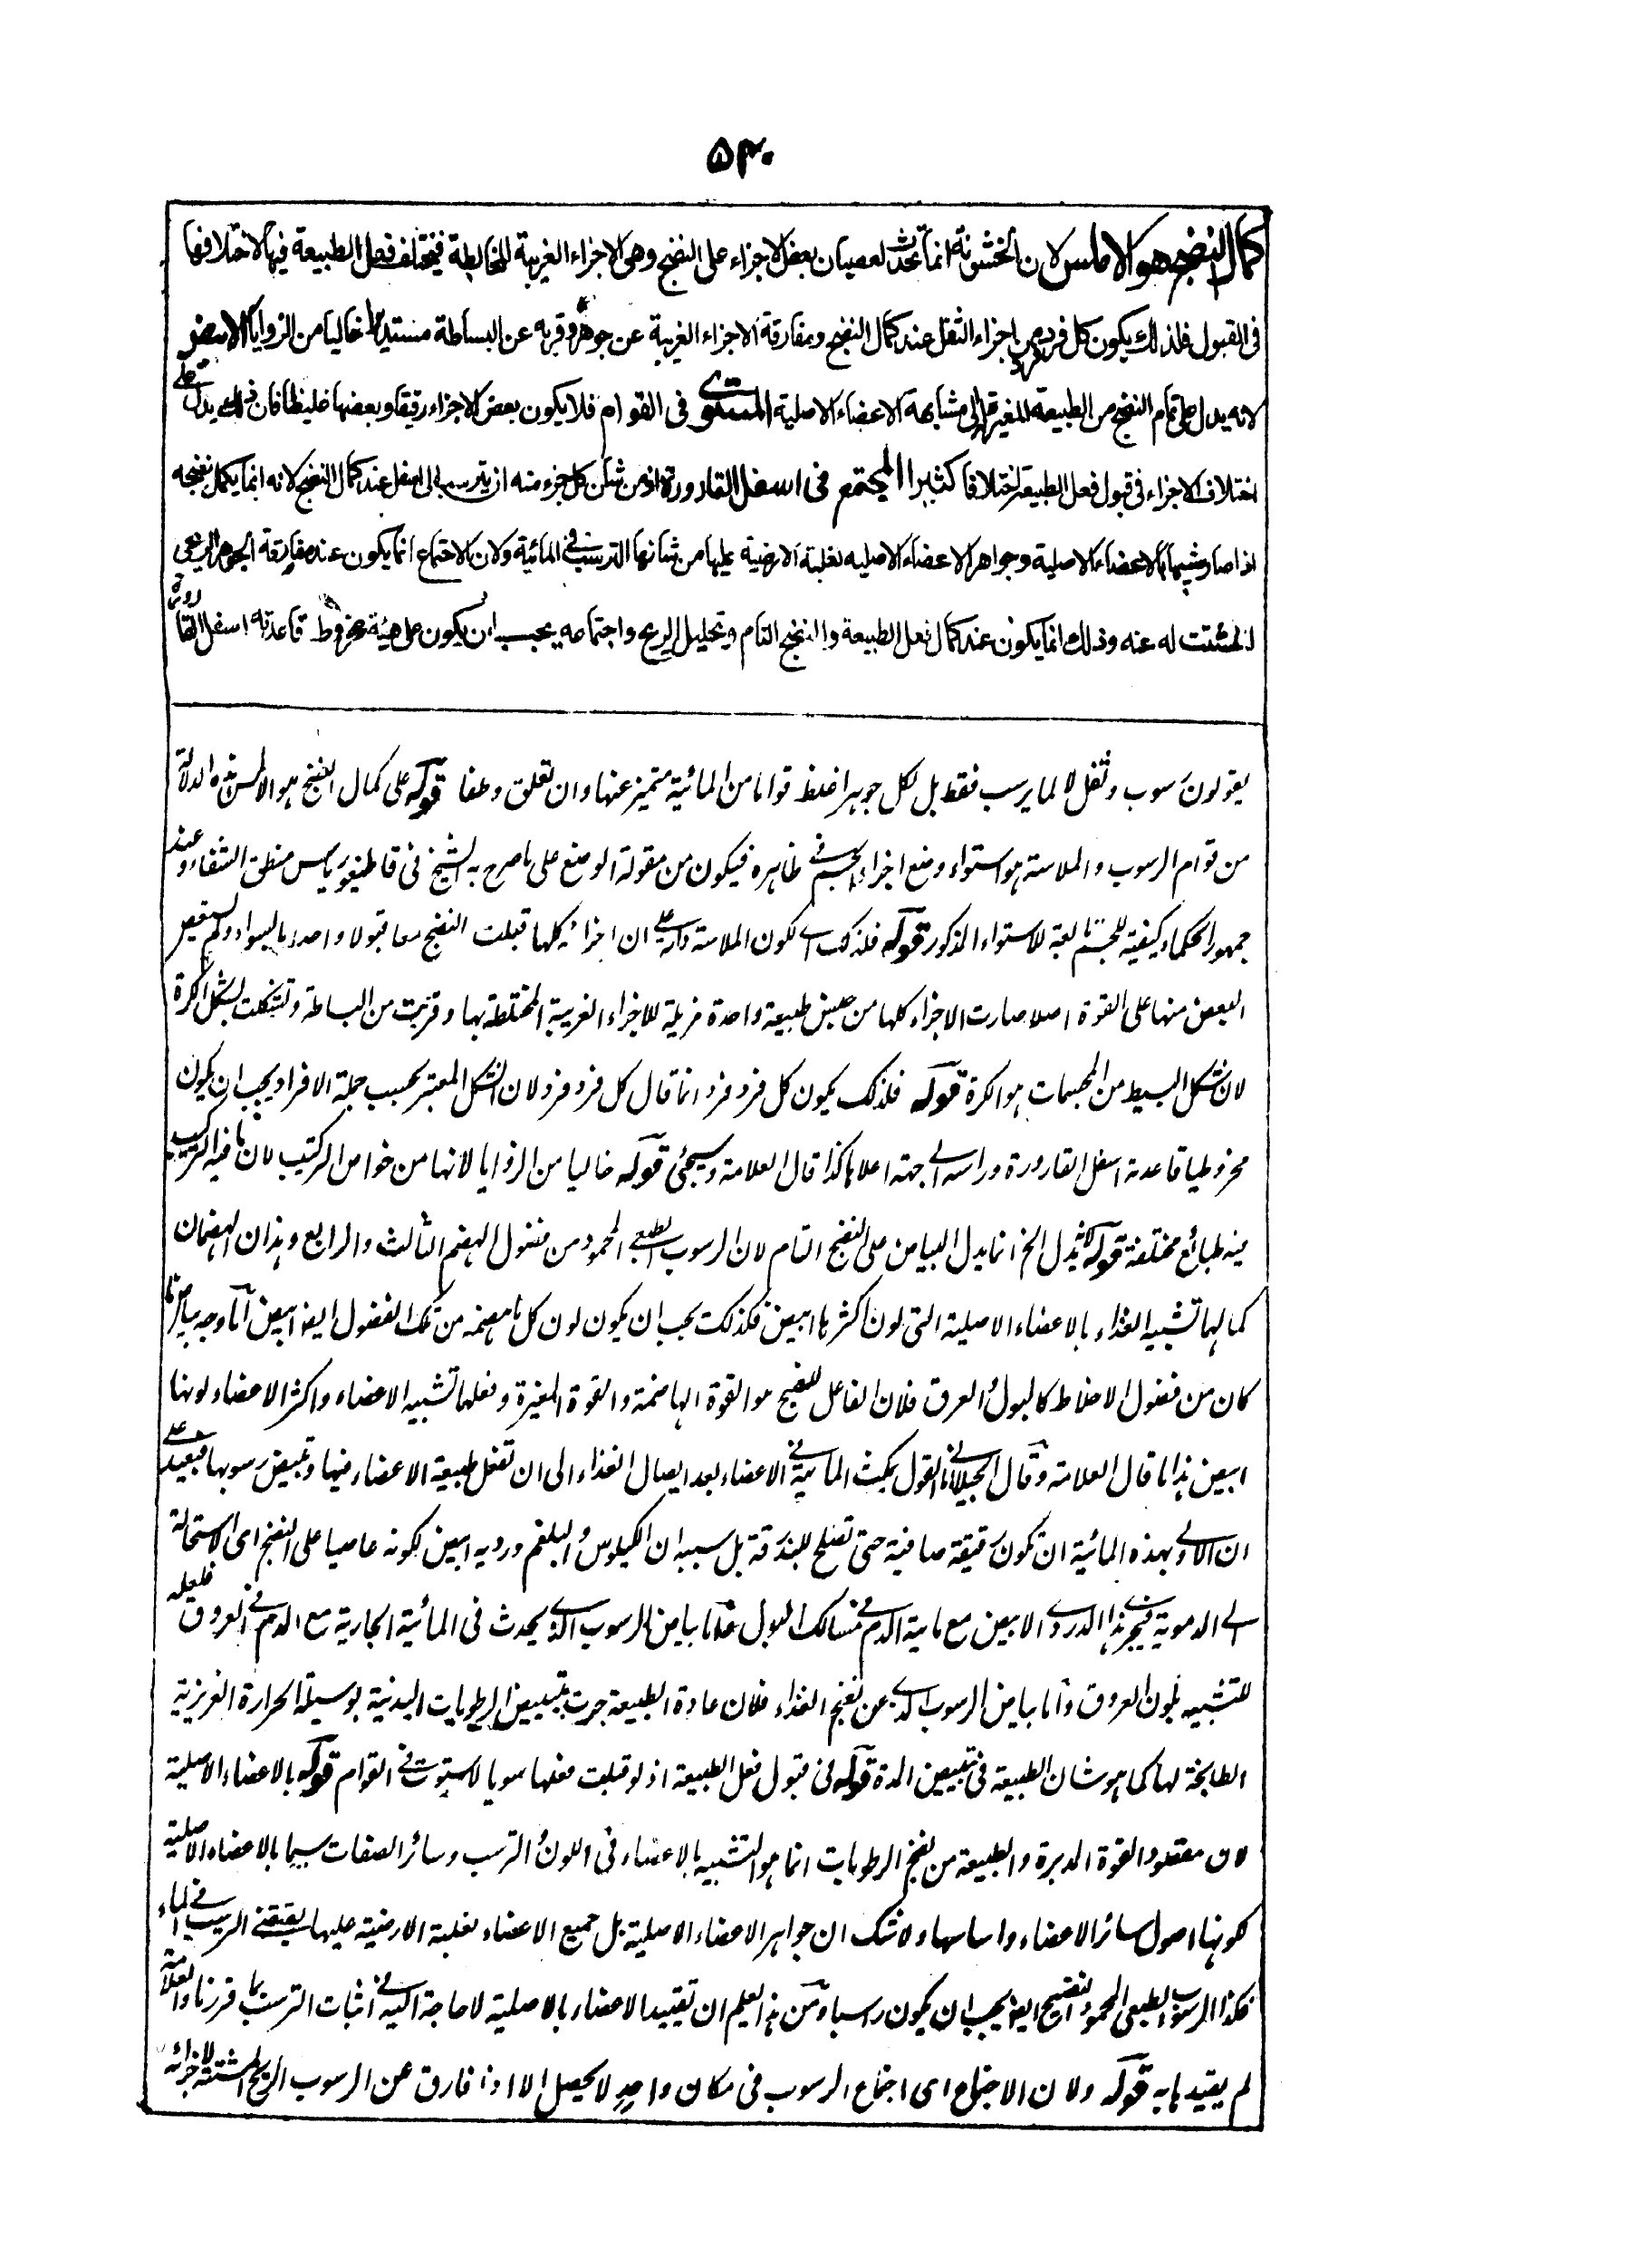 ۵۳۰
كمال النضج هو الاملس لان الخشونة انما تحدث لعصيان بعض الاجزاء على النضج وهى الاجزاء الغريبة المخالطة فيختلف فعل الطبيعة فيها لاختلافها
فى القبول فلذلك يكون كل فرد من اجزاء الثفل عند كمال النضج ومفارقة الاجزاء الغريبة عن جوهره وقربه عن البساطة مستديرا خاليا من الزوايا الابيض
لانه يدل على تمام النضج من الطبيعة المغيرة الى مشابهة الاعضاء الاصلية المستوى فى القوام فلا يكون بعض الاجزاء رقيقا وبعضها غليظا فان ذلك يدل على
اختلاف الاجزاء فى قبول فعل الطبيعة اختلافا كثيرا المجتمع فى اسفل القارورة اذ من شان كل جزء منه ان يترسب الى اسفل عند كمال النضج لانه انما يكمل نضجه
اذا صار شبيها بالاعضاء الاصلية وجواهر الاعضاء الاصليه لغلبة الارضية عليها من شانها الترسب فى المائية ولان الاجتماع انما يكون عند مفارقة الجوهر الريحى
المشتت له عنه وذلك انما يكون عند كمال فعل الطبيعة والنضج التام وتحليل الريح واجتماعه يجب ان يكون على هيئة مخروط قاعدته اسفل القارورة
يقولون رسوب وثفل لا لما يرسب فقط بل لكل جوهر اغلظ قواما من المائية متميز عنها وان تعلق وطفا قوله على كمال النضج هو الاملس هذه الدلالة
من قوام الرسوب والملاسة هو استواء وضع اجزاء الجسم فى ظاهره فيكون من مقولة الوضع على ما صرح به الشيخ فى قاطيغورياس منطق الشفاء وعند
جمهور الحكماء كيفية للجسم تابعة للاستواء المذكور قوله فلذلك اى لكون الملاسة دالة على ان اجزائه كلها قبلت النضج معا قبولا واحدا بالسواد ولم يستعص
البعض منها على القوة اصلا صارت الاجزاء كلها من جنس طبيعة واحدة مزيلة للاجزاء الغريبة المختلطة بها وقربت من البساطة وتشكلت بشكل الكرة
لان شكل البسيط من المجسمات هو الكرة قوله فلذلك يكون كل فرد فرد انما قال كل فرد فرد لان الشكل المعتبر بحسب جملة الافراد يجب ان يكون
مخروطيا قاعدته اسفل القارورة وراسه الى جهة اعلاها كذا قال العلامة وسيجئ قوله خاليا من الزوايا لانها من خواص التركيب لان ما فيه التركيب
فيه طبائع مختلفة قوله لانه يدل الخ انما يدل البياض على النضج التام لان الرسوب الطبعى المحمود من فضول الهضم الثالث والرابع وهذان الهضمان
كمالها تشبيه الغذاء بالاعضاء الاصلية التى لون اكثرها ابيض فكذلك يجب ان يكون لون كل ما هضمه من تلك الفضول ايضا ابيض اما وجه بياض ما
كان من فضول الاخلاط كالبول والعرق فلان الفاعل للنضج هو القوة الهاضمة والقوة المغيرة وفعلها تشبيه الاعضاء واكثر الاعضاء لونها
ابيض هذا ما قال العلامة وقال الجيلانى القول بمكث المائية فى الاعضاء بعد ايصال الغذاء الى ان تفعل طبيعة الاعضاء فيها وتبيض رسوبها بعيد على
ان الاولى بهذه المائية ان تكون رقيقة صافية حتى تصلح للبذرقة بل سببه ان الكيلوس والبلغم ورديه ابيض لكونه عاصيا على النضج اى الاستحالة
الى الدموية فينجر هذا الدردى الابيض مع مائية الدم فى مسالك البول واما بياض الرسوب الذى يحدث فى المائية الجارية مع الدم فى العروق فلعله
للتشبيه بلون العروق واما بياض الرسوب الذى عن نضج الغذاء فلان عادة الطبيعة جرت بتبييض الرطوبات البدنية بوسيلة الحرارة الغريزية
الطابخة لها كما هو شان الطبيعة فى تبييض المدة قوله فى قبول فعل الطبيعة اذ لو قبلت فعلها سويا لاستوت فى القوام قوله بالاعضاء الاصلية
لان مقصود القوة المدبرة والطبيعة من نضج الرطوبات انما هو التشبيه بالاعضاء فى اللون والترسب وسائر الصفات سيما بالاعضاء الاصلية
لكونها اصول سائر الاعضاء واساسها ولا شك ان جواهر الاعضاء الاصلية بل جميع الاعضاء لغلبة الارضية عليها يقتضى الترسب فى الماء
فكذا الرسوب الطبعى المحمود النضيج ايضا يجب ان يكون راسبا ومن هذا يعلم ان تقييد الاعضاء بالاصلية لا حاجة اليه فى اثبات الترسب كما قررنا والعلامة
لم يقيدها به قوله ولان الاجتماع اى اجتماع الرسوب فى مكان واحد لا يحصل الا اذا فارق عن الرسوب الريح المشتتة لاجزائه